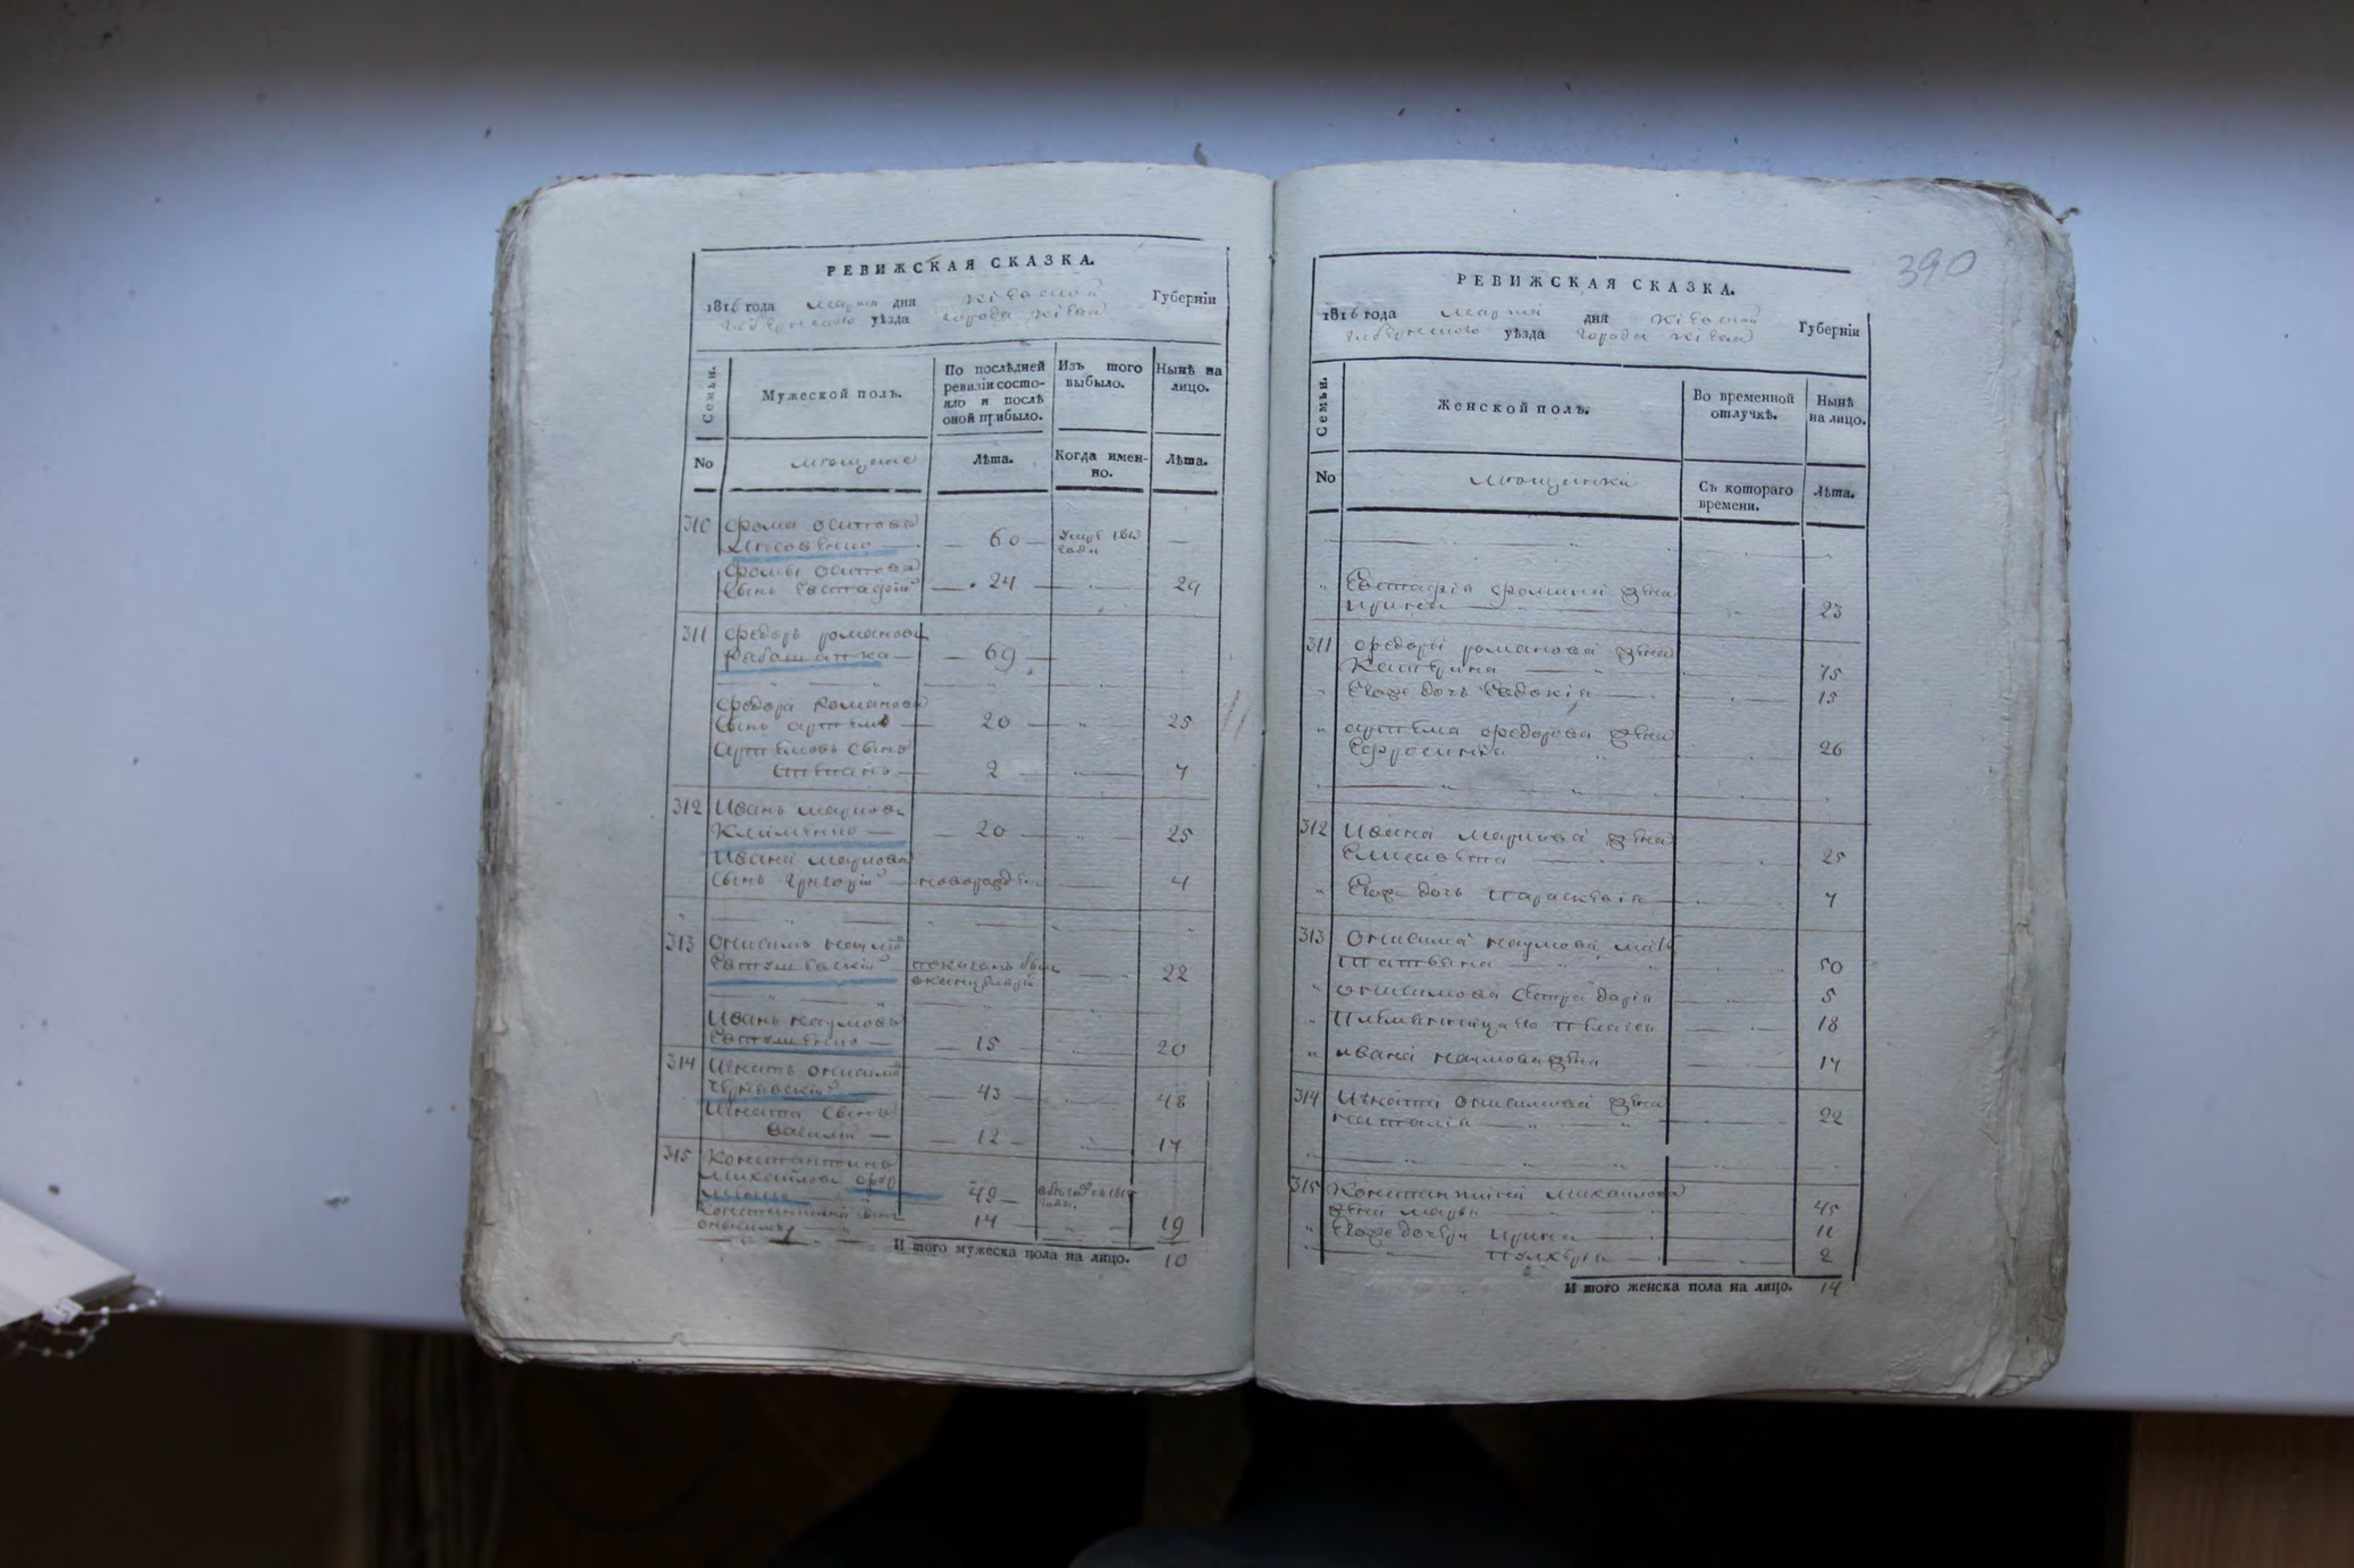 РЕВИЖСКАЯ СКАЗКА.
1816 года марта дня Кіевской Губерніи
Губернского уѣзда города Кіева
Семьи.
Мужеской полъ.
По послѣдней ревизіи состояло и послѣ оной прибыло.
Изъ того выбыло.
Нынѣ на лицо.
No
мещане
Лѣта.
Когда именно.
Лѣта.
310 Фома Осиповъ
60 1813
года
Фомы Осипова
сынъ Евстафій 24 29
311 Федоръ Романовъ
69
Федора Романова
сынъ Артемъ 20 25
Артемовъ сынъ
Степанъ 2 7
312 Иванъ Марковъ
Клименко 20 25
Ивана Маркова
сынъ Григорій новорожден 4
313 Онисимъ Наумовъ
Евтушевскій показанъ былъ 22
Иванъ Наумовъ
Евтушенко 15 20
314 Игнатъ Онисимовъ
Чернявскій 43 48
Игната сынъ
Василій 12 17
315 Константинъ
Михайловъ
49
года
Константина сынъ
14 19
И того мужеска пола на лицо. 10
390
РЕВИЖСКАЯ СКАЗКА.
1816 года марта дня Кіевской Губерніи
Губернского уѣзда города Кіева
Семьи.
Женской полъ.
Во временной отлучкѣ.
Нынѣ на лицо.
No
мещанки
Съ котораго времени.
Лѣта.
Евстафія Фомина жена
Ирина 23
311 Федора Романова жена
Катерина 75
Егоже дочь Евдокія 15
Артема Федорова жена
Ефросинія 26
312 Ивана Маркова жена
Елисавета 25
Егоже дочь Параскевія 7
313 Онисима Наумова мать
Татьяна 50
Онисимова сестра Дарія 5
Племянница его Пелагея 18
Ивана Наумова жена 17
314 Игната Онисимова жена
Наталія 22
315 Константина Михайлова
жена Марья 45
Егоже дочери Ирина 11
Пулхерія 2
И того женска пола на лицо. 14